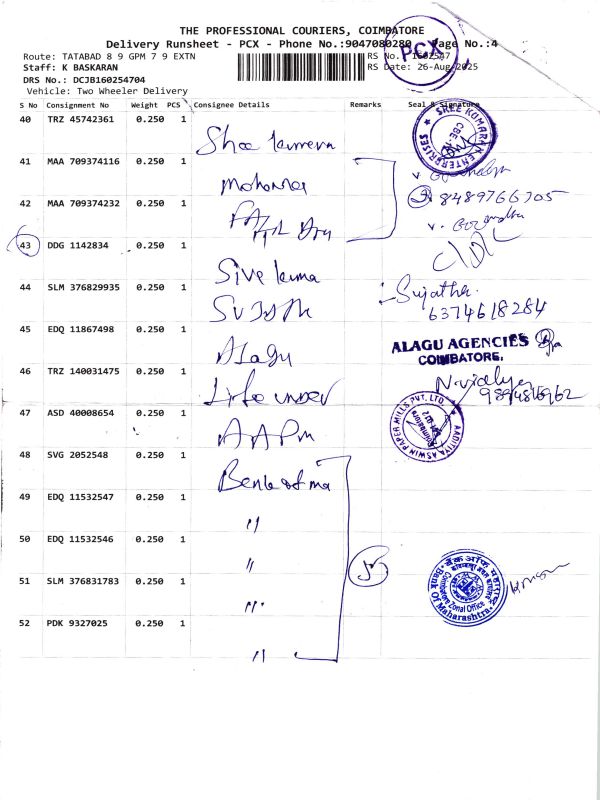 THE PROFESSIONAL COURIERS, COIMBATORE
Delivery Runsheet - PCX - Phone No.:9047080280 Page No.:4
PCX
Route: TATABAD 8 9 GPM 7 9 EXTN
RS No.
Staff: K BASKARAN
RS Date: 26-Aug-2025
DRS No.: DCJB160254704
Vehicle: Two Wheeler Delivery
S No Consignment No Weight PCS Consignee Details Remarks Seal & Signature
40 TRZ 45742361 0.250 1
SHREE KOMARAN ENTERPRISES
41 MAA 709374116 0.250 1
8489766705
42 MAA 709374232 0.250 1
43 DDG 1142834 0.250 1
Siva kuma
44 SLM 376829935 0.250 1
Sujatha.
6374618284
45 EDQ 11867498 0.250 1
Alagu
ALAGU AGENCIES
COIMBATORE.
46 TRZ 140031475 0.250 1
Life
N. vidhya
47 ASD 40008654 0.250 1
AADITYA ASWIN PAPER MILLS PVT. LTD.
48 SVG 2052548 0.250 1
Bank of ma
49 EDQ 11532547 0.250 1
"
50 EDQ 11532546 0.250 1
"
51 SLM 376831783 0.250 1
"
बैंक ऑफ महाराष्ट्र
Bank Of Maharashtra
Coimbatore Zonal Office
52 PDK 9327025 0.250 1
"